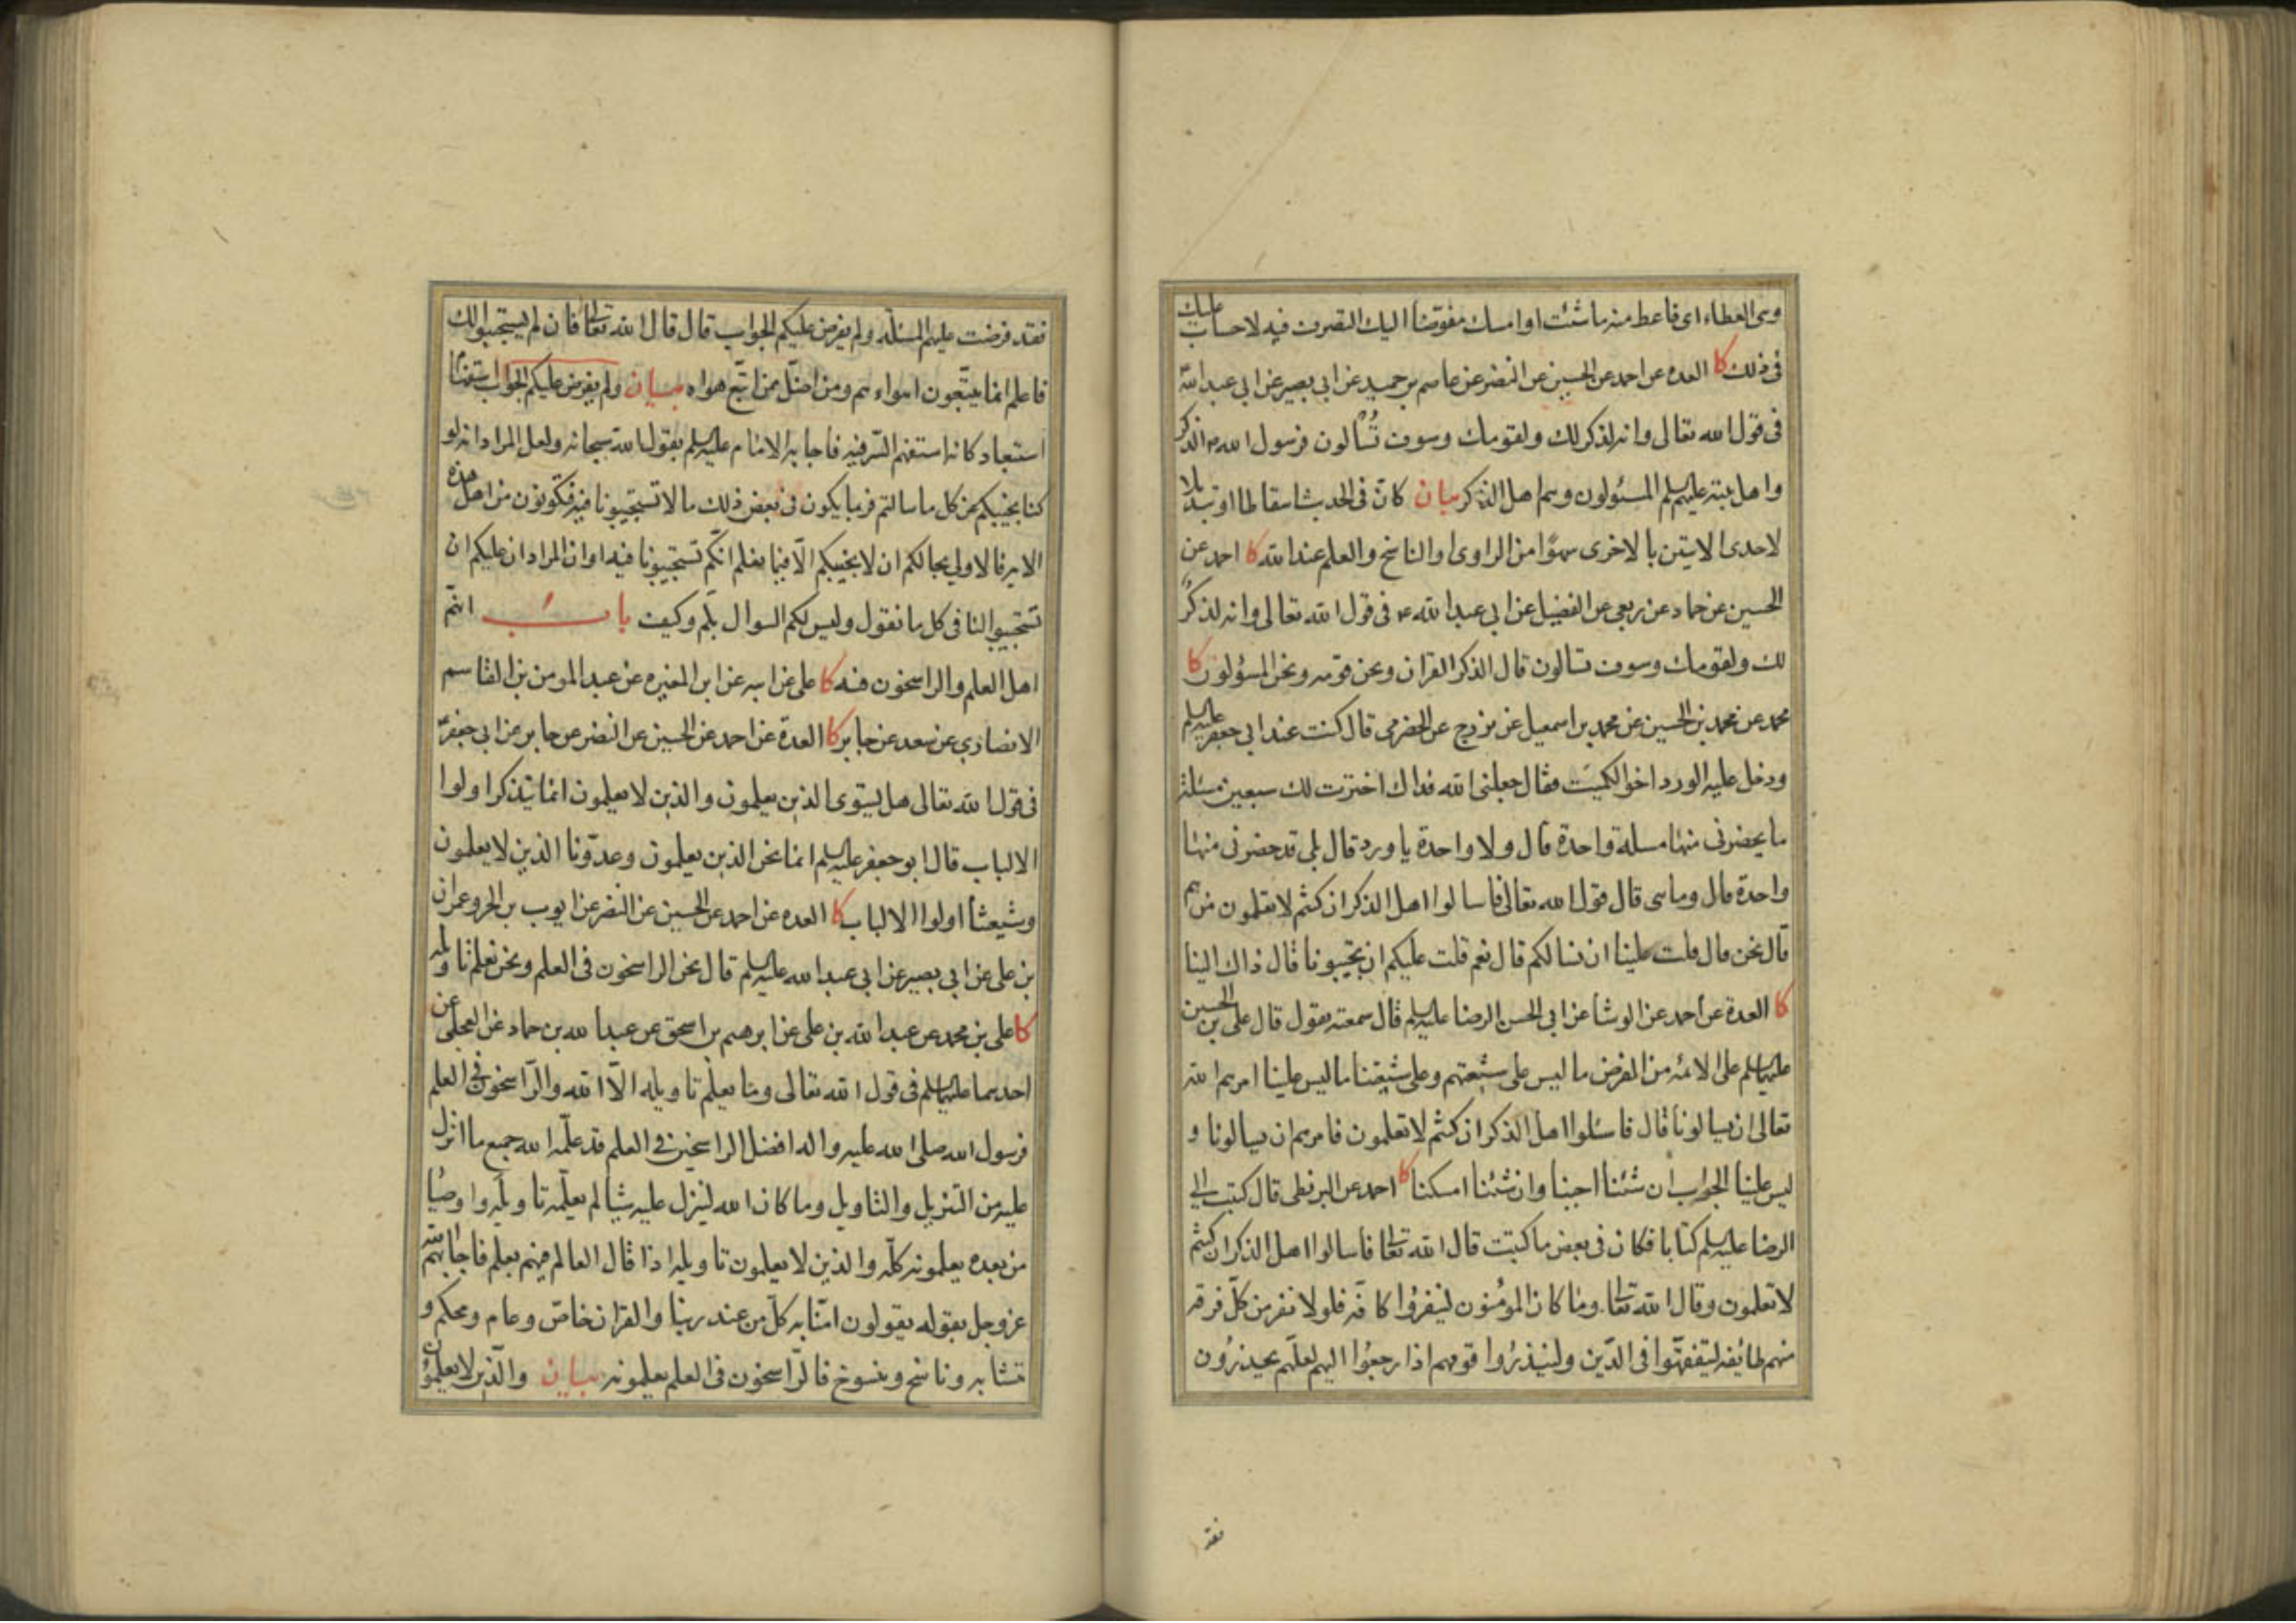 وهى العطاء اى فاعط منه ما شئت او امسك مفوضا اليك التصرف فيه لا حساب عليك
فى ذلك كا العده عن احمد عن الحسين عن النضر عن عاصم بن حميد عن ابي بصير عن ابي عبد الله
فى قول الله تعالى وانه لذكر لك ولقومك وسوف تُسْالون فرسول الله ص الذكر
واهل بيته عليهم السلم المسئولون وهم اهل الذكر بيان كانّ فى الحديث اسقاطا او تبديلا
لاحدى الايتين بالاخرى سهوًا من الراوى او الناسخ والعلم عند الله كا احمد عن
الحسين عن حماد عن ربعي عن الفضيل عن ابي عبد الله ع فى قول الله تعالى وانه لذكرٌ
لك ولقومك وسوف تسالون قال الذكر القران ونحن قومه ونحن المسؤلون كا
محمد عن محمد بن الحسين عن محمد بن اسمعيل عن بزرج عن الحضرمى قال كنت عند ابي جعفر عليه السلم
ودخل عليه الورد اخو الكميت فقال جعلنى الله فداك اخترت لك سبعين مسئلة
ما يحضرنى منها مسلة واحدة قال ولا واحدة يا ورد قال بلى قد حضرنى منها
واحدة قال وما هى قال قول الله تعالى فاسالوا اهل الذكر ان كنتم لا تعلمون من هم
قال نحن قال قلت علينا ان نسالكم قال نعم قلت عليكم ان تجيبونا قال ذاك الينا
كا العدة عن احمد عن الوشا عن ابي الحسن الرضا عليه السلم قال سمعته يقول قال على بن الحسين
عليهما السلم على الائمه من الفرض ما ليس على شيعتهم وعلى شيعتنا ما ليس علينا امرهم الله
تعالى ان يسالونا قال فاسئلوا اهل الذكر ان كنتم لا تعلمون فامرهم ان يسالونا و
ليس علينا الجواب ان شئنا اجبنا وان شئنا امسكنا كا احمد عن البزنطى قال كتبت الى
الرضا عليه السلم كتابا فكان فى بعض ما كتبت قال الله تعالى فاسالوا اهل الذكر ان كنتم
لا تعلمون وقال الله تعالى وما كان المؤمنون لينفروا كافّة فلولا نفر من كلّ فرقة
منهم طائفة ليتفقّهوا فى الدّين ولينذرُوا قومهم اذا رجعُوا اليهم لعلّهم يحذرُون
فقد
فقد فرضت عليهم المسئلة ولم يفرض عليكم الجواب قال قال الله تعالى فان لم يستجيبوا لك
فاعلم انما يتّبعون اهواءهم ومن اضلّ ممن اتّبع هواه بيان ولم يفرض عليكم الجواب استفهام
استبعاد كانه استفهم السّر فيه فاجابه الامام عليه السلم بقول الله سبحانه ولعل المراد انه لو
كنا نجيبكم عن كل ما سالتم فربما يكون فى بعض ذلك ما لا تستجيبونا فيه فتكونون من اهل هذه
الاية فالاولى بحالكم ان لا نجيبكم الّا فيما نعلم انكم تستجيبونا فيه او ان المراد ان عليكم ان
تستجيبوا لنا فى كل ما نقول وليس لكم السوال بلم وكيف باب انهم
اهل العلم والراسخون فيه كا على عن ابيه عن ابن المغيره عن عبد المومن بن القاسم
الانصارى عن سعد عن جابر كا العدة عن احمد عن الحسين عن النضر عن جابر عن ابى جعفر
فى قول الله تعالى هل يستوى الذين يعلمون والذين لا يعلمون انما يتذكر اولوا
الالباب قال ابو جعفر عليه السلم انما نحن الذين يعلمون وعدوّنا الذين لا يعلمون
وشيعتنا اولوا الالباب كا العده عن احمد عن الحسين عن النضر عن ايوب بن الحر وعمران
بن على عن ابي بصير عن ابي عبد الله عليه السلم قال نحن الراسخون فى العلم ونحن نعلم تاويله
كا على بن محمد عن عبد الله بن على عن ابرهيم بن اسحق عن عبد الله بن حماد عن العجلى عن
احدهما عليهما السلم فى قول الله تعالى وما يعلم تاويله الّا الله والرّاسخون فى العلم
فرسول الله صلى الله عليه واله افضل الراسخين فى العلم قد علّمه الله جميع ما انزل
عليه من التنزيل والتاويل وما كان الله لينزل عليه شيا لم يعلّمه تاويله واوصيا
من بعده يعلمونه كلّه والذين لا يعلمون تاويله اذا قال العالم فيهم بعلم فاجابهم الله
عز وجل بقوله يقولون امنّا به كلّ من عند ربنا والقران خاصّ وعام ومحكم و
متشابه وناسخ ومنسوخ فالرّاسخون فى العلم يعلمونه بيان والّذين لا يعلمون